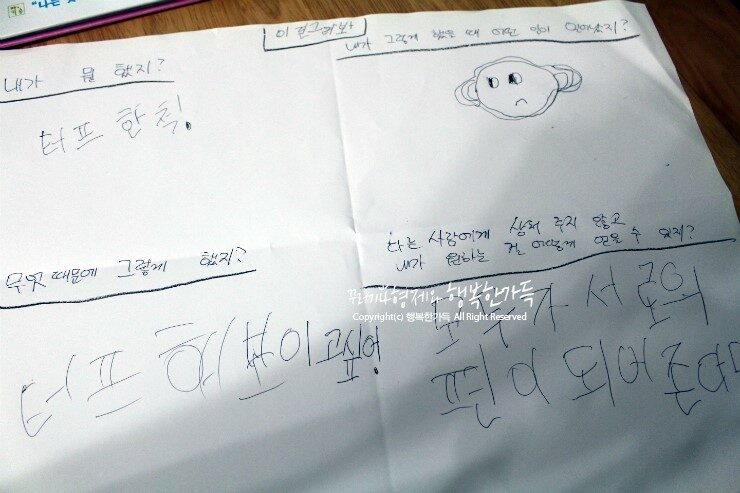 "나는
내가 뭘 했지?
터프 한 척.
내가 그렇게 했을 때 어떤 일이 일어났지?
무엇 때문에 그렇게 했지?
터프 해 보이고싶어
다른 사람에게 상처 주지 않고
내가 원하는 걸 어떻게 얻을 수 있지?
모두가 서로의
편이 되어준다
꾸러기형제와 행복한가득
Copyright(c) 행복한가득 All Right Reserved